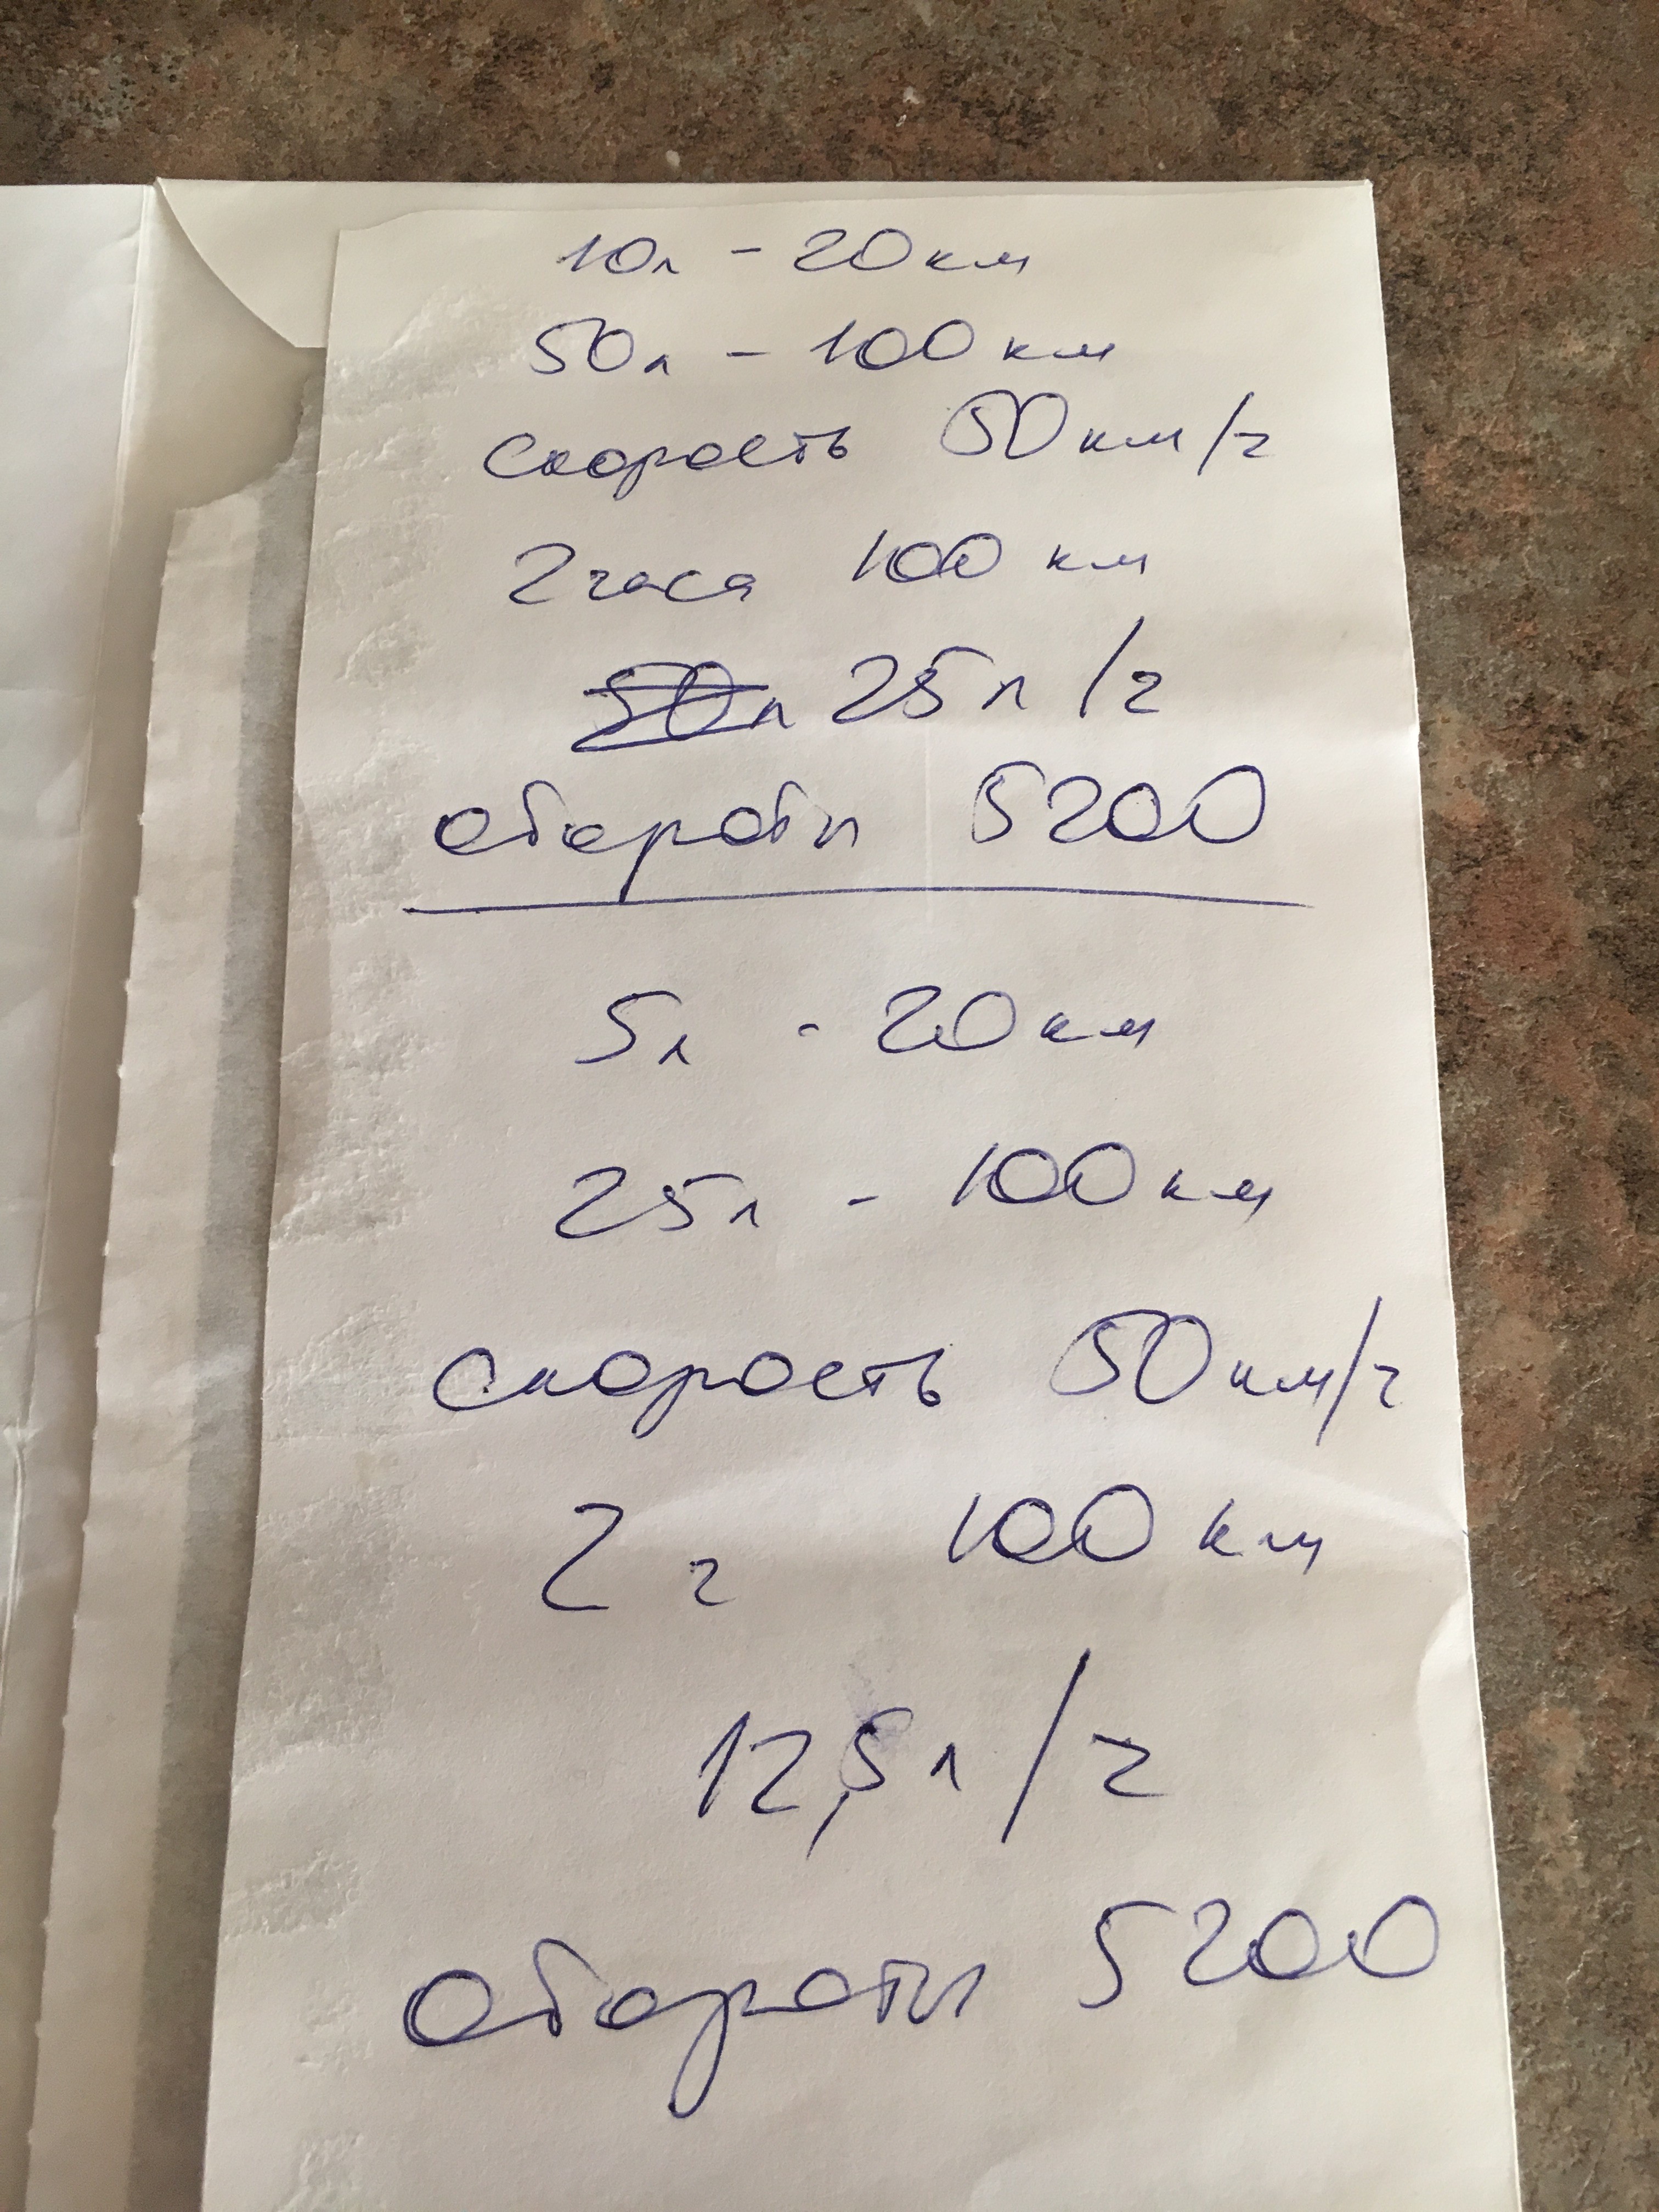 10л - 20км
50л - 100км
скорость 50км/ч
2часа 100 км
50л 25л/ч
обороты 5200
5л - 20км
25л - 100км
скорость 50км/ч
2 ч 100 км
12,5л/ч
обороты 5200